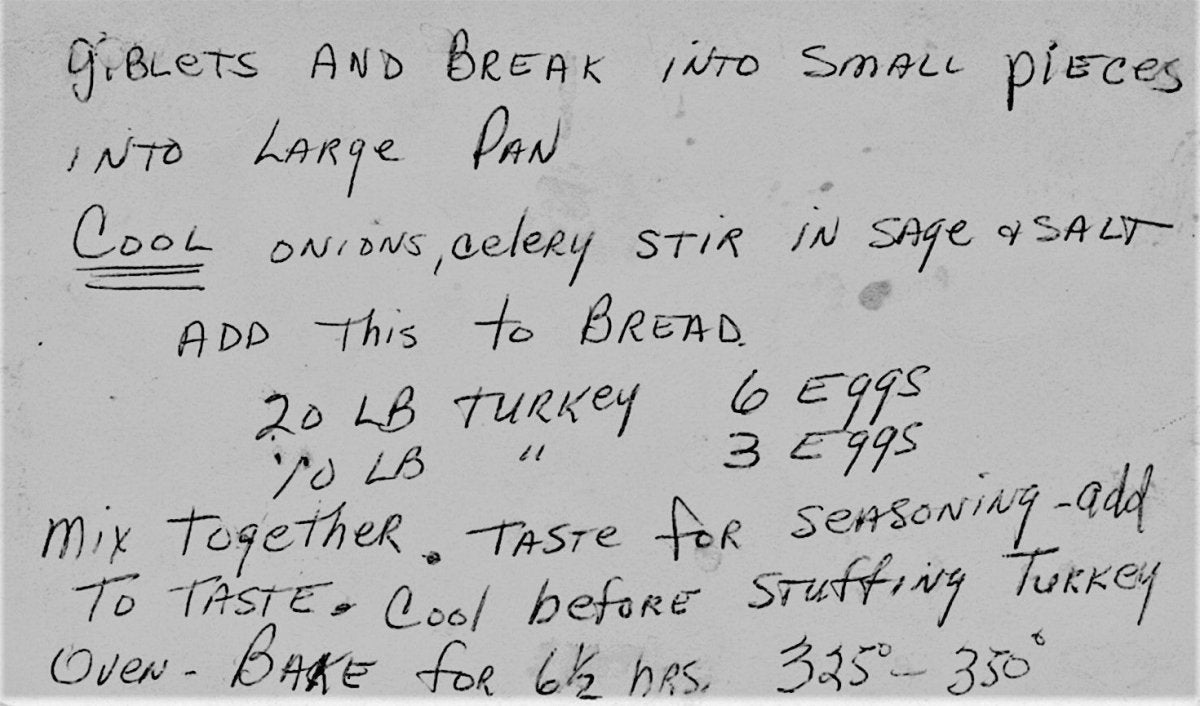 giBLeTS AND BREAK iNTO SMALL piECes
iNTO LARge PAN
COOL ONIONS, celeRy STiR iN SAge & SALT
ADD This to BREAD.
20 LB TURKey 6 Eggs
10 LB " 3 Eggs
Mix TogetheR. TASTe foR SeASONiNg - add
To TASTE. Cool befoRE STuffiNg TuRKey
OVeN - BAKE foR 6½ hRS. 325° - 350°